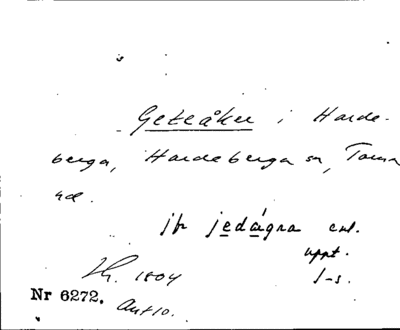 Geteåker i Harde-
berga, Hardeberga sn, Torna
hd.
jfr jedågna enl.
uppt.
J-s.
Lh. 1804
Nr 6272. Ant 10.